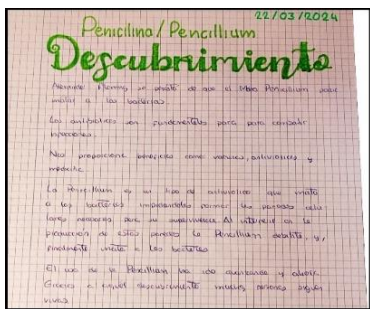 22/03/2024
Penicilina/Pencillium
Descubrimiento
Alexander Fleming se de que el Penicillium
matar a las bacterias.
Los antibióticos son fundamentales para para combatir
infecciones.
Nos proporciona beneficios como vacunas, antibióticos y
La Penicillium es un tipo de antibiótico que mata
a las bacterias impidiendoles formar las paredes
necesarias para su supervivencia. Al interferir en la
producción de estas paredes la Penicillium debilita, y,
mata a las bacterias
El uso de la Penicillium ha ido avanzando y
Gracias a aquel descubrimiento muchas personas siguen
vivas.